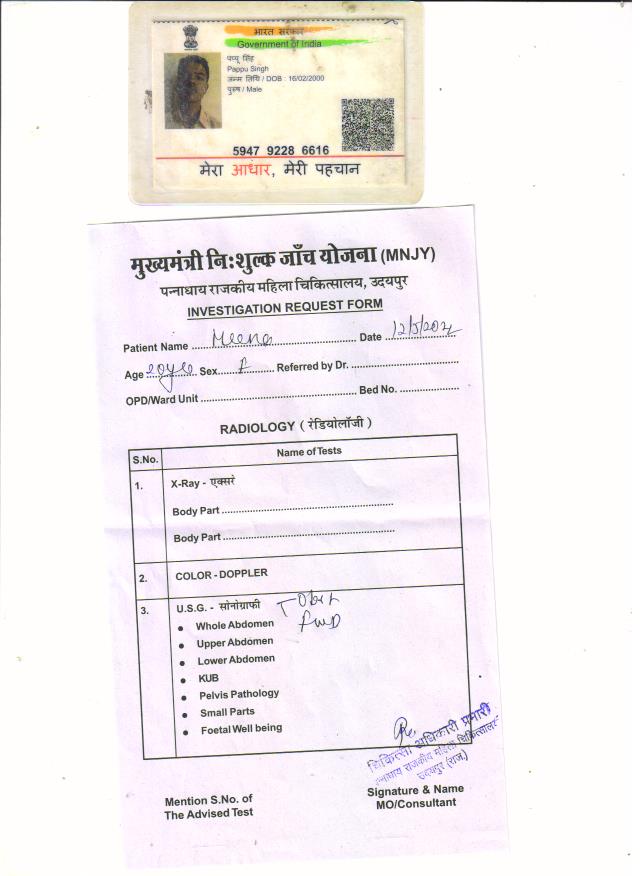 भारत सरकार
Government of India
पप्पू सिंह
Pappu Singh
जन्म तिथि / DOB : 16/02/2000
पुरुष / Male
5947 9228 6616
मेरा आधार, मेरी पहचान
मुख्यमंत्री निःशुल्क जाँच योजना (MNJY)
पन्नाधाय राजकीय महिला चिकित्सालय, उदयपुर
INVESTIGATION REQUEST FORM
Patient Name Meena Date 12/5/202
Age Sex F Referred by Dr.
OPD/Ward Unit Bed No.
RADIOLOGY ( रेडियोलॉजी )
S.No. Name of Tests
1. X-Ray - एक्सरे
Body Part
Body Part
2. COLOR - DOPPLER
3. U.S.G. - सोनोग्राफी
• Whole Abdomen
• Upper Abdomen
• Lower Abdomen
• KUB
• Pelvis Pathology
• Small Parts
• Foetal Well being
चिकित्सा अधिकारी प्रभारी
पन्नाधाय राजकीय महिला चिकित्सालय
उदयपुर (राज.)
Mention S.No. of
The Advised Test
Signature & Name
MO/Consultant